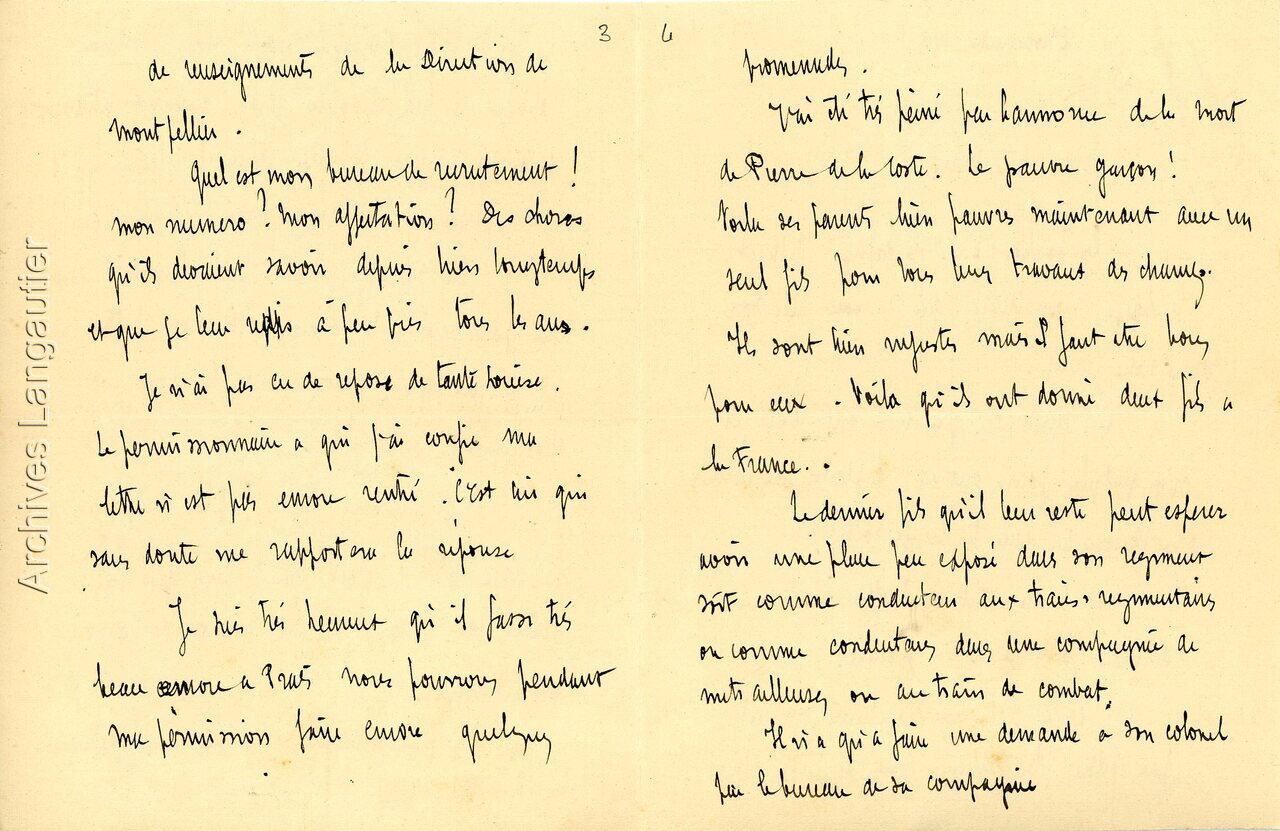 3
de renseignements de la Direction de
Montpellier.
Quel est mon bureau de recrutement !
mon numero ? Mon affectation ? Des choses
qu'ils devraient savoir depuis bien longtemps
et que je leur redis à peu près tous les ans.
Je n'ai pas eu de repose de tante Louise.
Le permissionnaire a qui j'ai confie ma
lettre n'est pas encore rentré. C'est lui qui
sans doute me rapportera la réponse
Je suis très heureux qu'il fasse très
beau encore a Prats nous pourrons pendant
ma permission faire encore quelques
4
promenades.
J'ai été très peiné par l'annonce de la mort
de Pierre de la Coste. Le pauvre garçon !
Voila ses parents bien pauvres maintenant avec un
seul fils pour tous leurs travaux des champs.
Ils sont bien injustes mais il faut etre bons
pour eux. Voila qu'ils ont donné deux fils a
la France.
Le dernier fils qu'il leur reste peut esperer
avoir une place peu exposé dans son regiment
soit comme conducteur aux trains regimentaires
ou comme conducteurs dans une compagnie de
mitrailleuses ou au train de combat.
Il n'a qu'a faire une demande a son colonel
par le bureau de sa compagnie
Archives Langautier